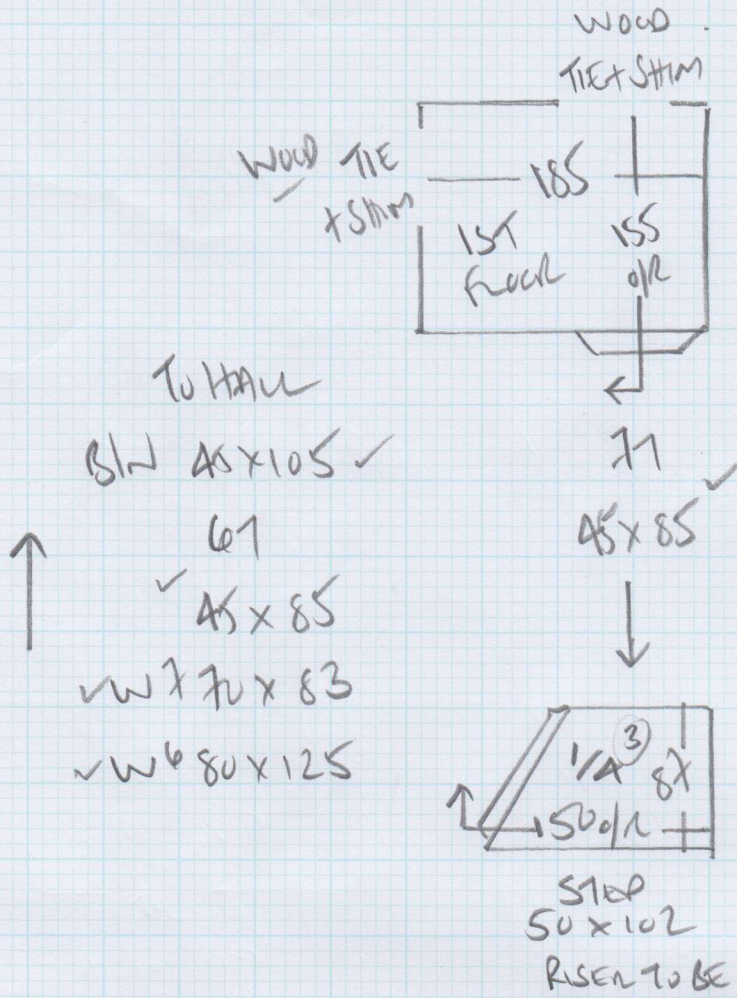 WOOD.
TIE + SHIM
WOOD TIE
+ SHIM
185
1ST
FLOOR
155
O/R
TO HALL
B/N 45 X 105 ✓
61
✓ 45 X 85
✓ W7 70 X 83
✓ W6 80 X 125
71
45 X 85 ✓
3
1/4
87
150 O/R
STEP
50 X 102
RISER TO BE